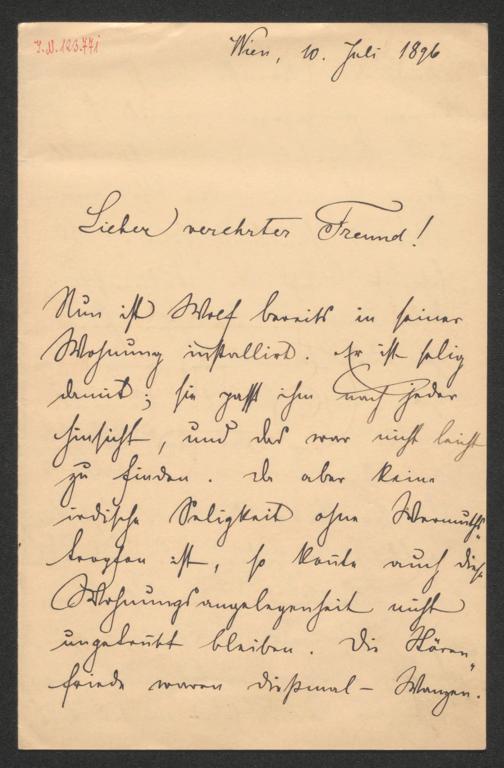 I.N. 123.771
Wien, 10. Juli 1896
Lieber verehrter Freund!
Nun ist Wolf bereits in seiner
Wohnung installirt. Er ist selig
damit; sie passt ihm nach jeder
Hinsicht, und das war nicht leicht
zu finden. Da aber keine
irdische Seligkeit ohne Wermuths-
tropfen ist, so konnte auch diese
Wohnungsangelegenheit nicht
ungetrübt bleiben. Die Stören-
friede waren dießmal – Wanzen.